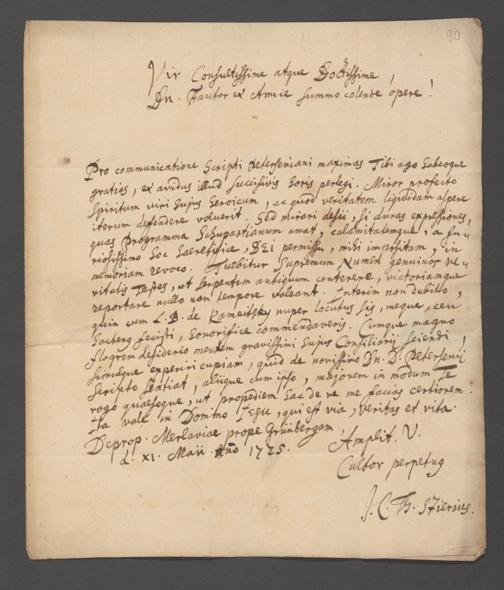 90
Vir Consultissime atque Doctissime
Dn. Fautor ex Amice summo colende opere!
Pro communicatione Scripti Petersieniani maximas Tibi ago habeoque
gratias, et avidus illud succisivis horis perlegi. Miror profecto
Spiritum viri hujus heroicum, ac quod veritatem liquidam aspere
iterum defendere voluerit. Sed mirari desii, si duras expressiones,
quas Programma amat, calamitatemque, a
hoc Sacrifice, DEi permissu, mihi impositam, in
memoriam revoco. Tuebitur Supremum Numen genuinos ve-
ritatis Testes, ut serpentem antiquum conterere, victoriamque
reportare nullo non tempore valeant. Interim non dubito,
quin cum L. B. de nuper locutus sis, meque, ceu
fecisti, honorifice commendaveris. Cumque magno
flagrem desiderio mentem gravissimi hujus Consiliarii sciendi,
simulque experiri cupiam, quid de novissimo Dn. D. Petersenii
Scripto sentiat, aliique cum ipso, majorem in modum Te
rogo quaesoque, ut propediem hac de re me facias certiorem.
Ita vale in Domino Jesu, qui est via, veritas et vita.
Deprop. Merlaviae prope Grünbergam
d. XI. Maii Año 1725.
Amplit. V.
Cultor perpetuus
J. C. Th.